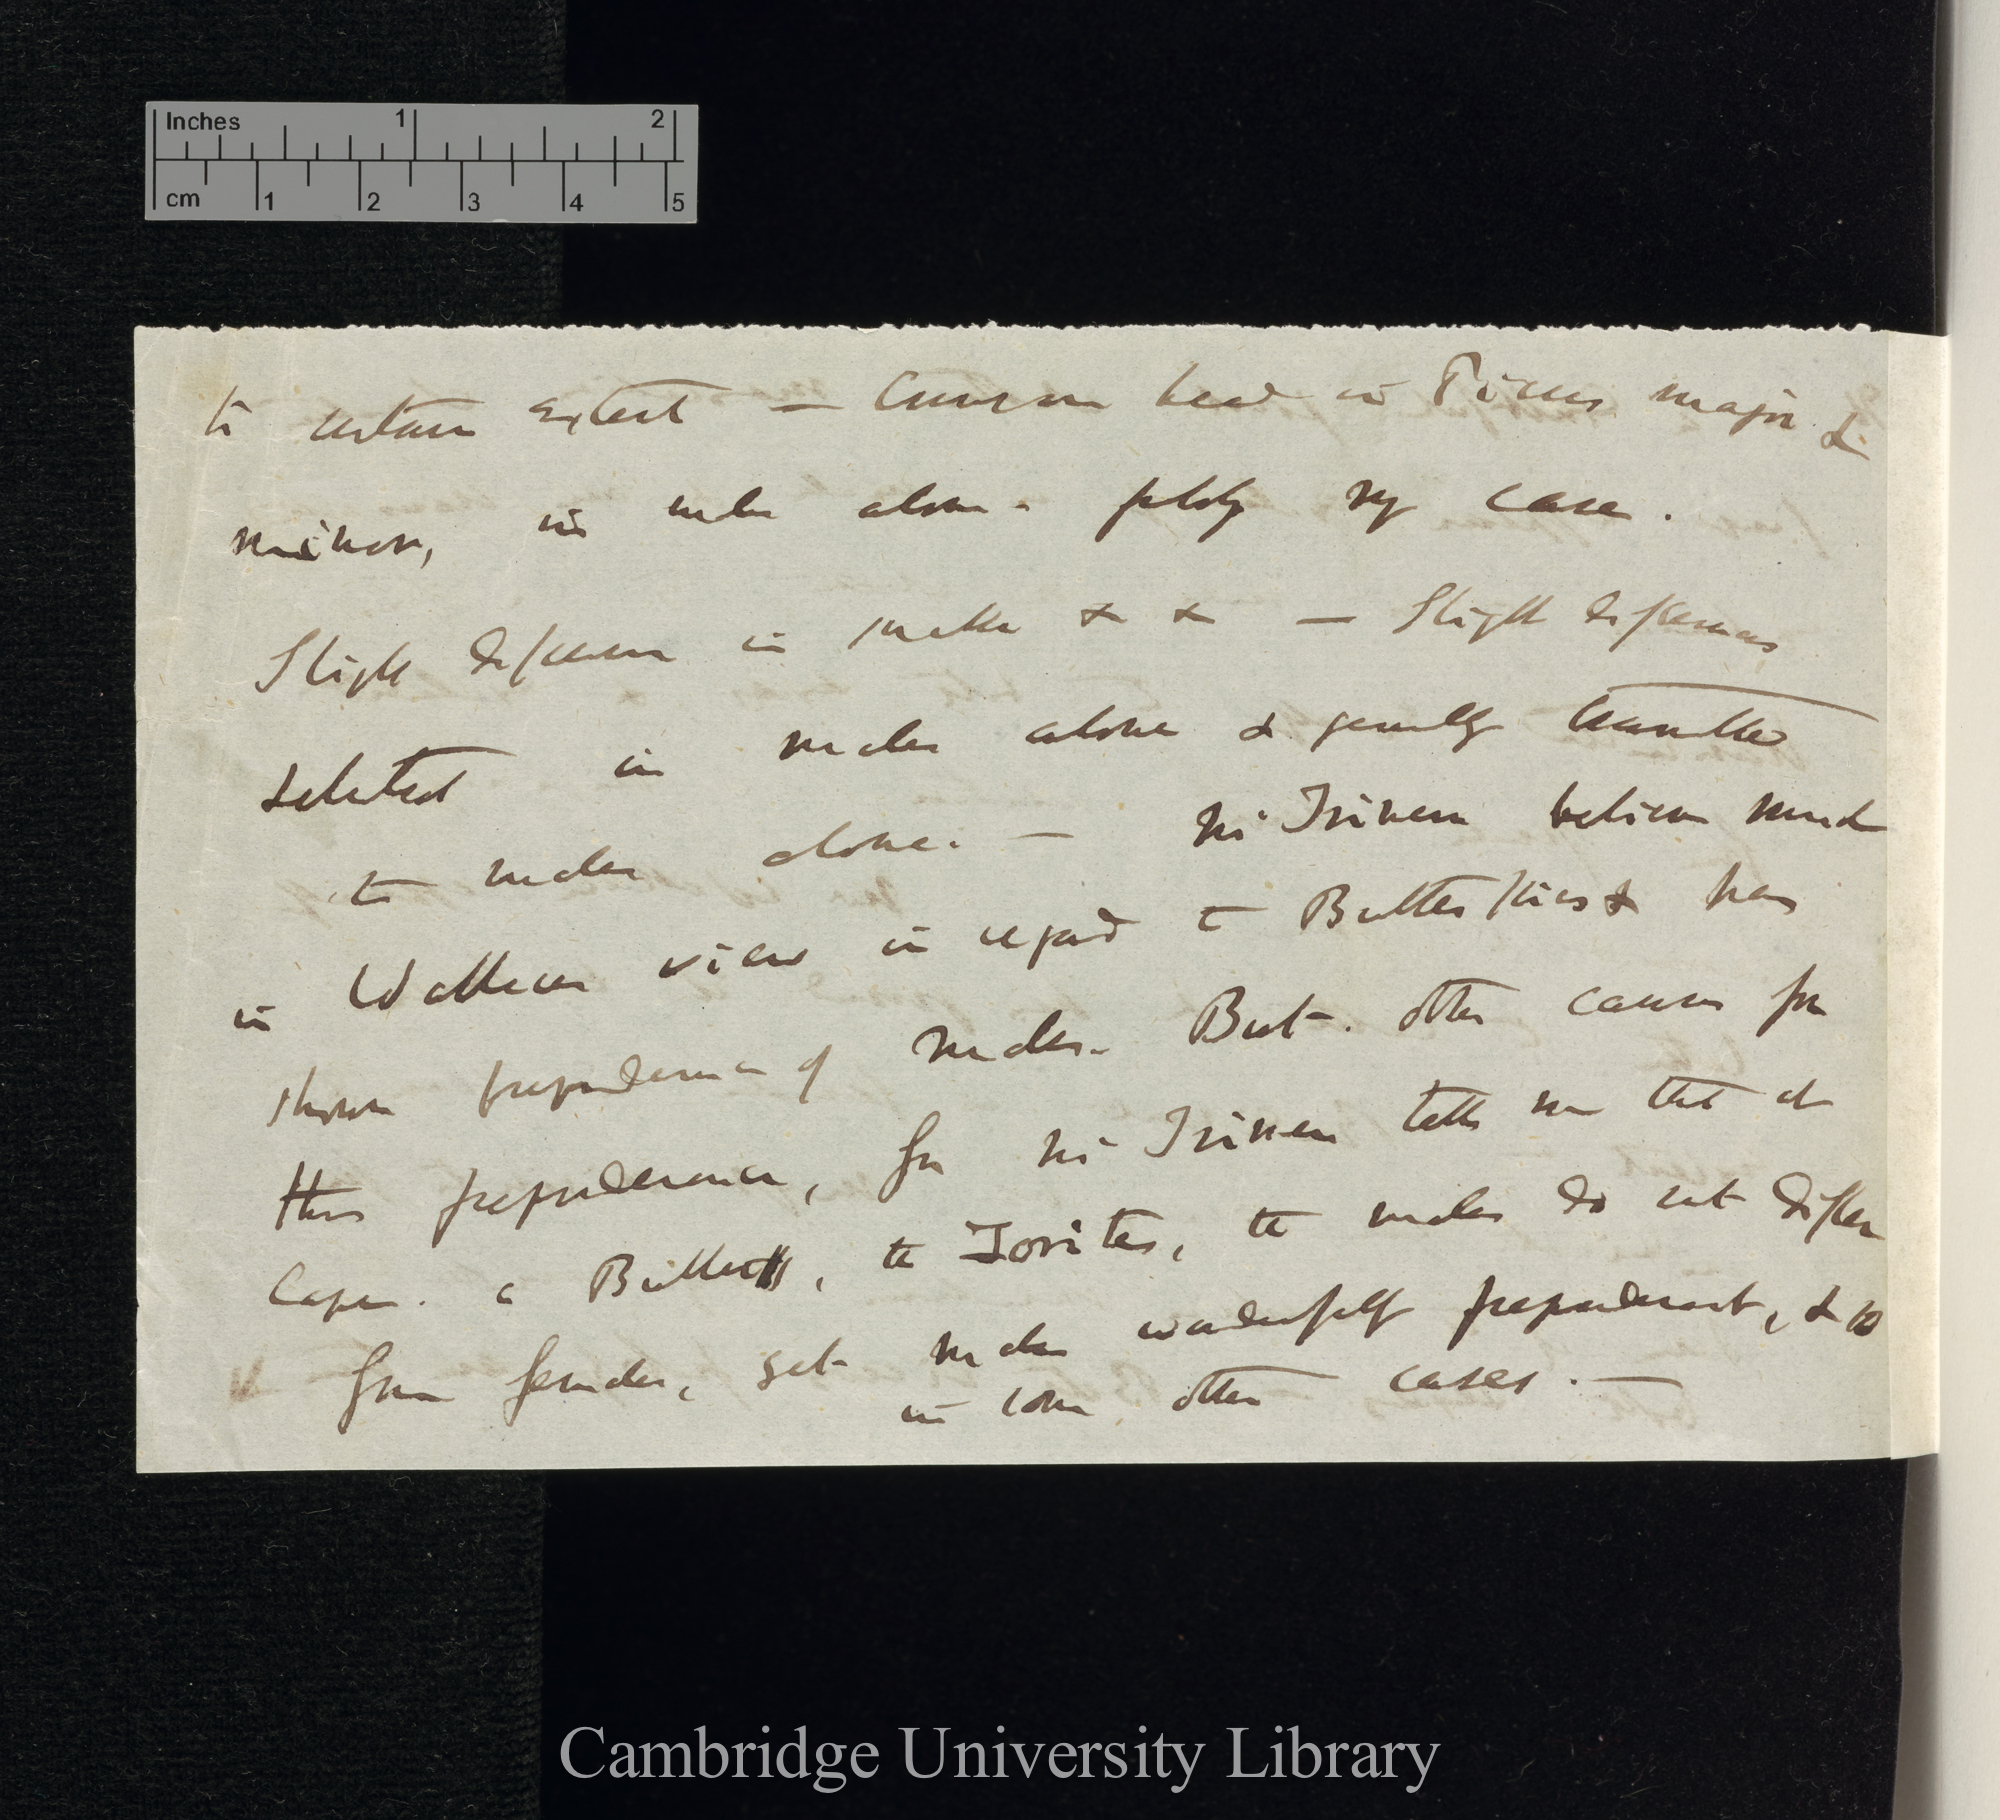 Inches 1 2
cm 1 2 3 4 5
to certain extent — Crimson head in Picus major &
minor, in male alone. probly my case.
Slight difference in snake & & — Slight differences
selected in males alone & generally transmitted
to males alone. — Mr Trimen believes much
in Wallace's view in regard to Butterflies & has
shown preponderance of males. But other causes for
this preponderance, for Mr Trimen tells me that at
Cape. a Butterfly, the males do not differ
from females, yet males wonderfully preponderant, & so
in some other cases. —
Cambridge University Library